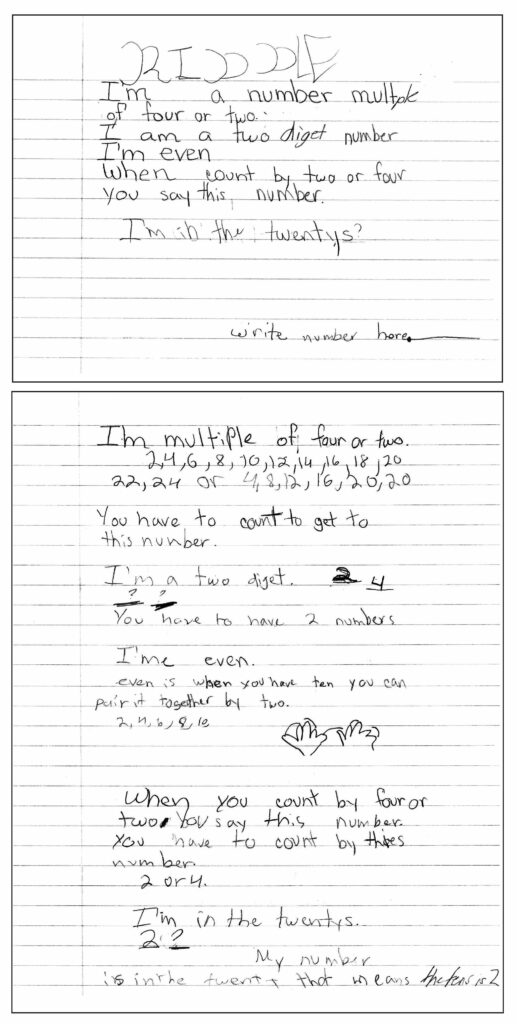 RIDDDLE
I'm a number multple
of four or two.
I am a two diget number
I'm even
When count by two or four
you say this number.
I'm in the twentys?
write number here
I'm multiple of four or two.
2,4,6,8,10,12,14,16,18,20
22,24 or 4,8,12,16,20,20
You have to count to get to
this number.
I'm a two diget. 2 4
? ?
You have to have 2 numbers
I'me even.
even is when you have ten you can
pair it together by two.
2,4,6,8,10
When you count by four or
two you say this number.
You have to count by
number.
2 or 4.
I'm in the twentys.
2 ?
My number
is in the twenty that means the tens is 2